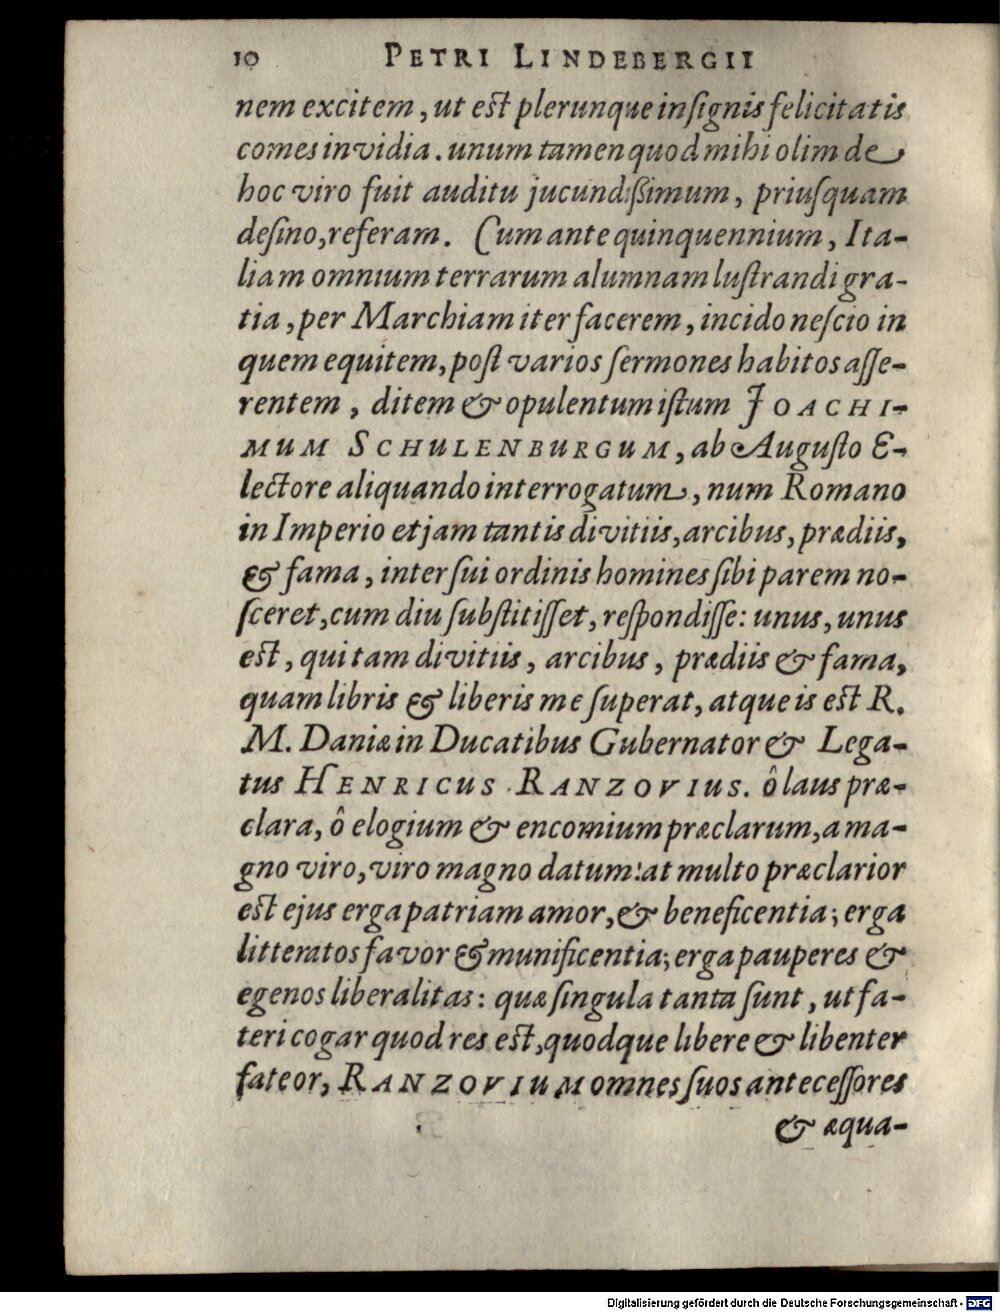 10 PETRI LINDEBERGII
nem excitem, ut est plerunque insignis felicitatis
comes invidia. unum tamen quod mihi olim de
hoc viro fuit auditu jucundissimum, priusquam
desino, referam. Cum ante quinquennium, Ita-
liam omnium terrarum alumnam lustrandi gra-
tia, per Marchiam iter facerem, incido nescio in
quem equitem, post varios sermones habitos asse-
rentem, ditem & opulentum istum JOACHI-
MUM SCHULENBURGUM, ab Augusto E-
lectore aliquando interrogatum, num Romano
in Imperio etjam tantis divitiis, arcibus, prædiis,
& fama, inter sui ordinis homines sibi parem no-
sceret, cum diu substitisset, respondisse: unus, unus
est, qui tam divitiis, arcibus, prædiis & fama,
quam libris & liberis me superat, atque is est R.
M. Daniæ in Ducatibus Gubernator & Lega-
tus HENRICUS RANZOVIUS. ô laus præ-
clara, ô elogium & encomium præclarum, a ma-
gno viro, viro magno datum: at multo præclarior
est ejus erga patriam amor, & beneficentia; erga
litteratos favor & munificentia; erga pauperes &
egenos liberalitas: quæ singula tanta sunt, ut fa-
teri cogar quod res est, quodque libere & libenter
fateor, RANZOVIUM omnes suos antecessores
& æqua-
Digitalisierung gefördert durch die Deutsche Forschungsgemeinschaft - DFG